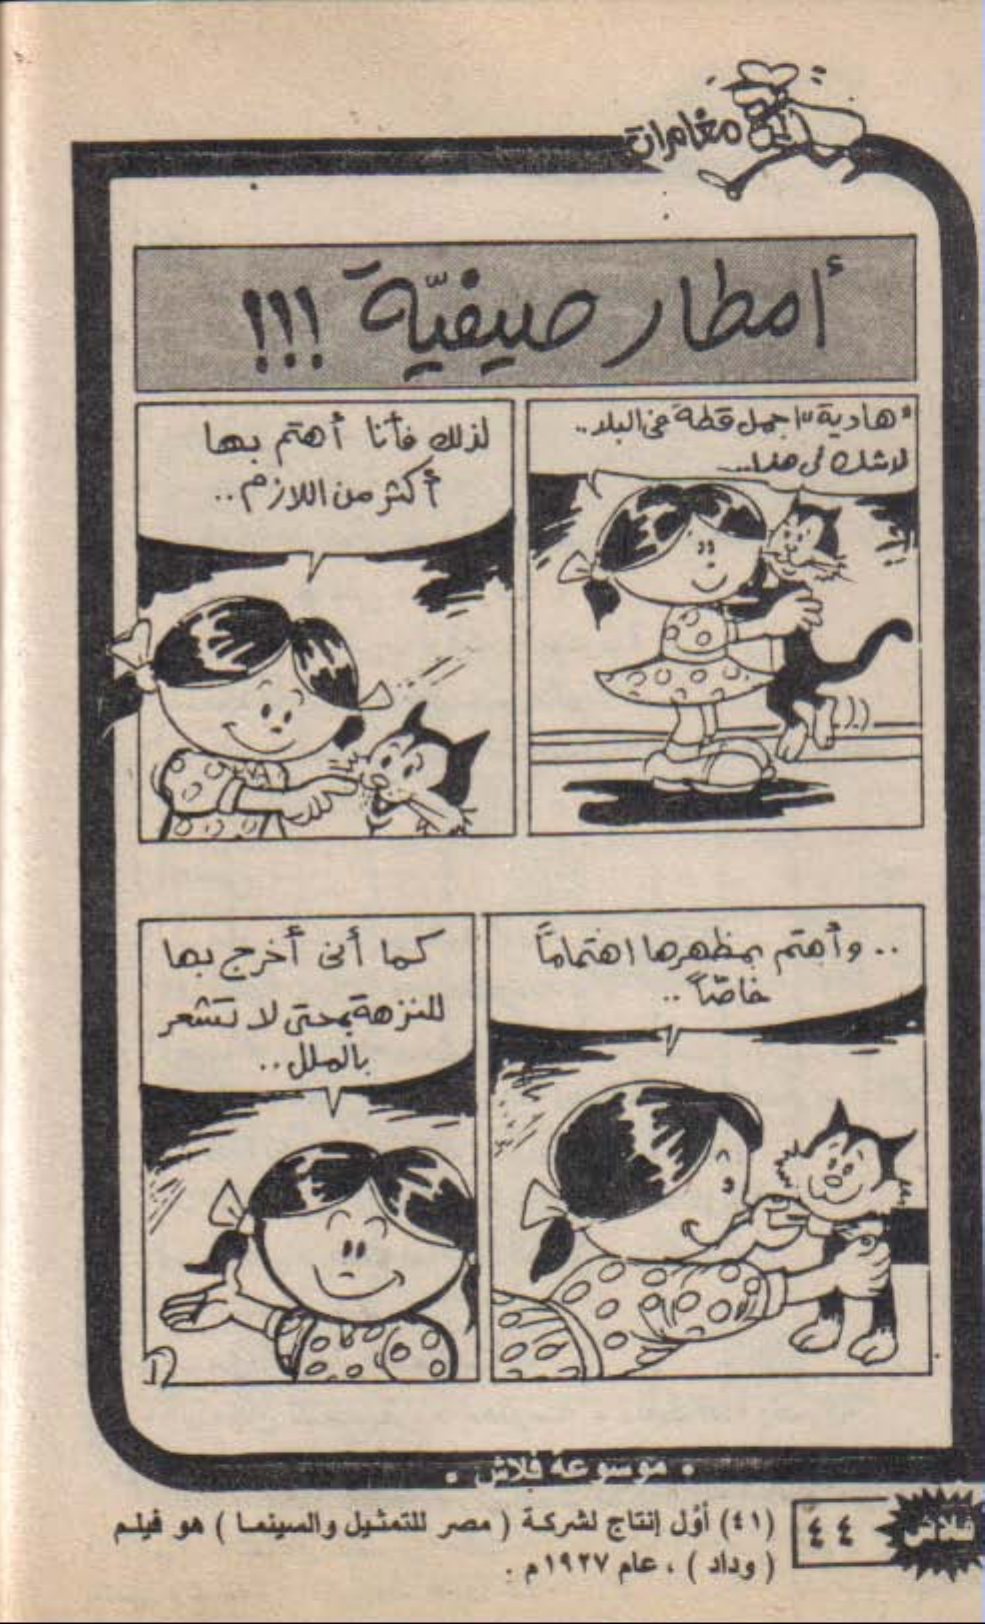 مغامرات
أمطار صيفيّة !!!
"هادية" اجمل قطة في البلد..
لا شك في هذا...
لذلك فأنا أهتم بها
أكثر من اللازم..
.. وأهتم بمظهرها اهتمامًا
خاصًّا..
كما أنى أخرج بها
للنزهة، حتى لا تشعر
بالملل..
• موسوعة فلاش •
فلاش
٤٤
(٤١) أوّل إنتاج لشركة ( مصر للتمثيل والسينما ) هو فيلم
( وداد ) ، عام ١٩٢٧م .